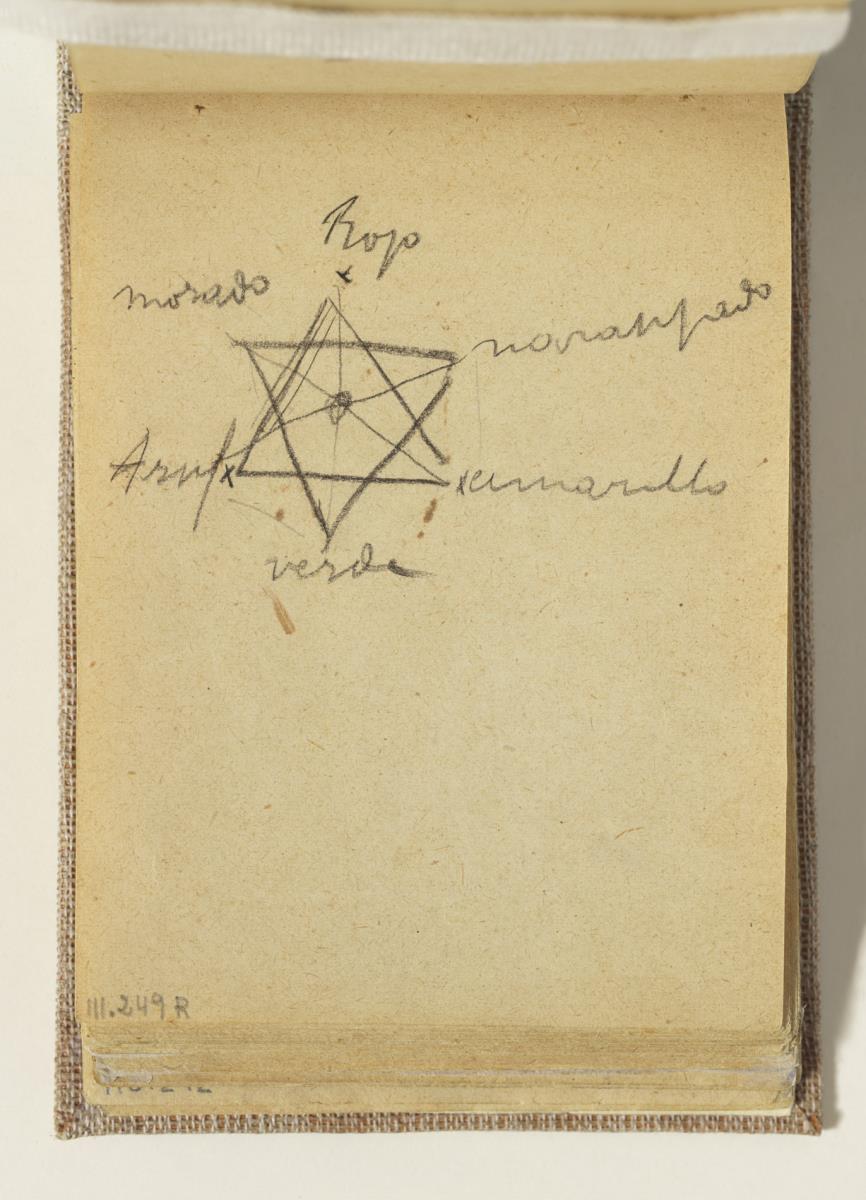 Rojo
morado
naranjado
Azul
x amarillo
verde
III.249R